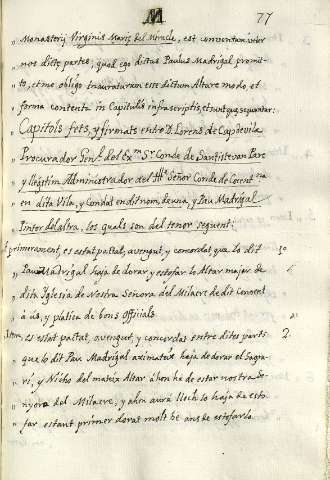 M 77
„ Monasterij Virginis Mariæ del Miracle, est conventum inter
„ nos dictes partes, quod ego dictus Paulus Madrigal promit-
„ to, et me obligo inauraturam esse dictum Altare modo, et
„ forma contenta in Capitulis infrascriptis,
„ Capitols fets, y firmats entre D. Lorens de Capdevila
„ Procurador Genl. del Exm. Sr. Conde de Santistevan Pare
„ y llegitim Administrador del Señor Conde de Cocent.na
„ en dita Vila, y Condat en dit nom, de una, y Pau Madrigal
„ Pintor de laltra, los quals son del tenor seguent:
„ E primerament, es estat pactat, avengut, y concordat que lo dit 1.
„ Pau Madrigal haja de dorar y estofar lo Altar major de
„ dita Iglesia de Nostra Señora del Milacre de dit Convent
„ a us, y platica de bons Officials.
„ Item, es estat pactat, avengut, y concordat entre dites parts 2.
„ que lo dit Pau Madrigal aximateix haja de dorar el Sagra-
„ ri, y Nicho del mateix Altar ahon he de estar nostra Se-
„ nyora del Milacre, y ahon aurà lloch lo haja de esto-
„ far estant primer dorat molt be ans de estofarlo.